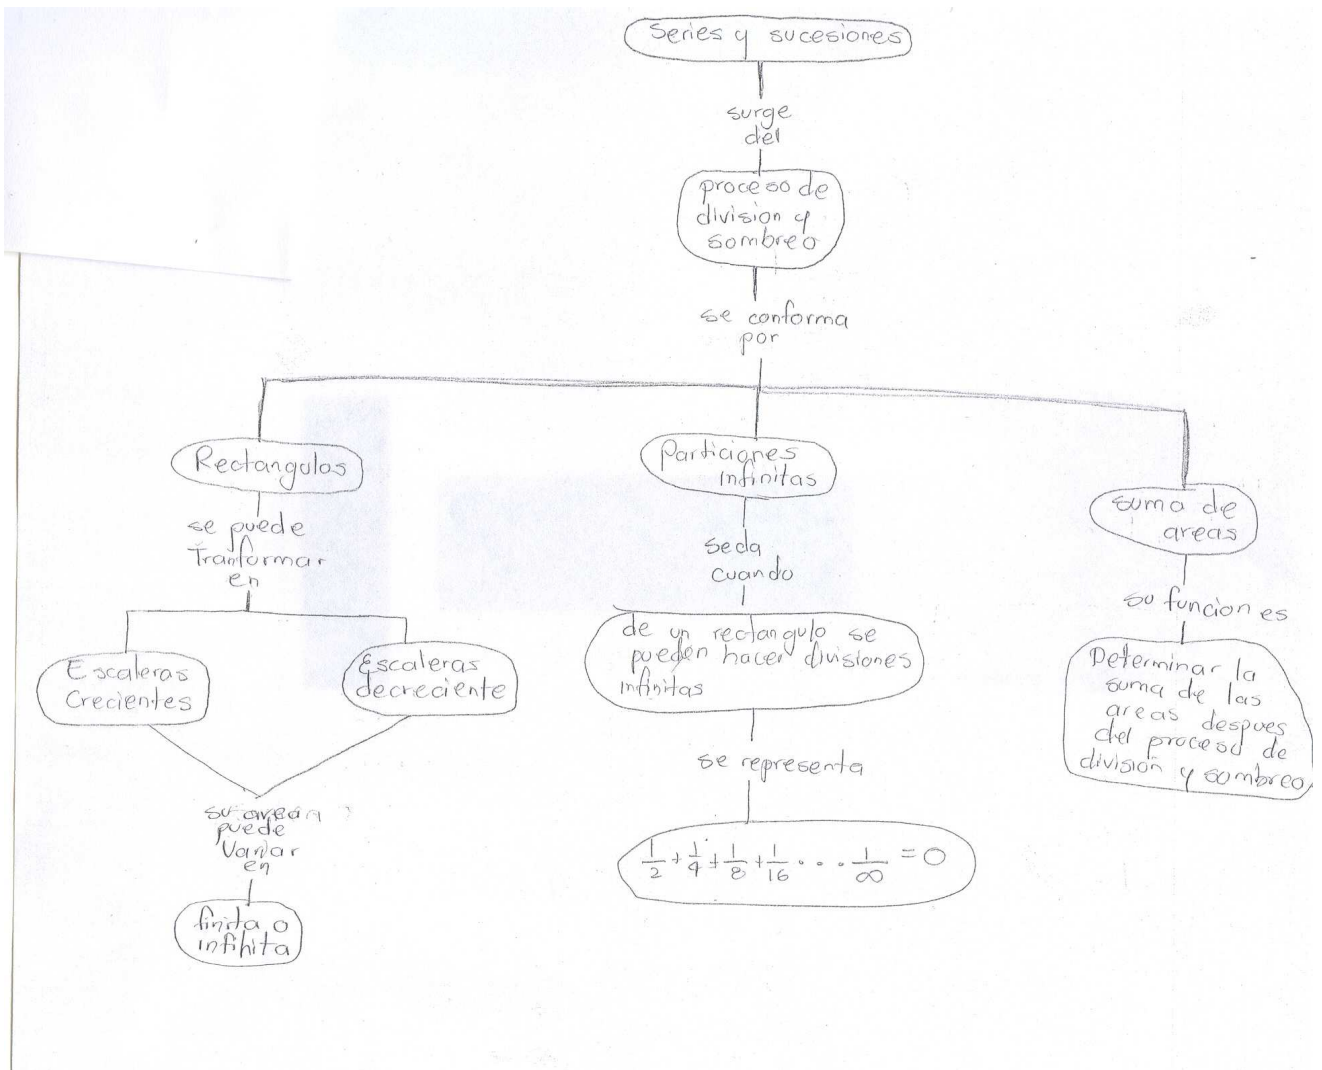 Series y sucesiones
surge
del
proceso de
división y
sombreo
se conforma
por
Rectangulos
se puede
Tranformar
en
Escaleras
Crecientes
Escaleras
decreciente
su area
puede
Variar
en
finita o
infinita
Particiones
infinitas
seda
cuando
de un rectangulo se
pueden hacer divisiones
infinitas
se representa
1/2 + 1/4 + 1/8 + 1/16 . . . 1/∞ = 0
suma de
areas
su funcion es
Determinar la
suma de las
areas despues
del proceso de
división y sombreo